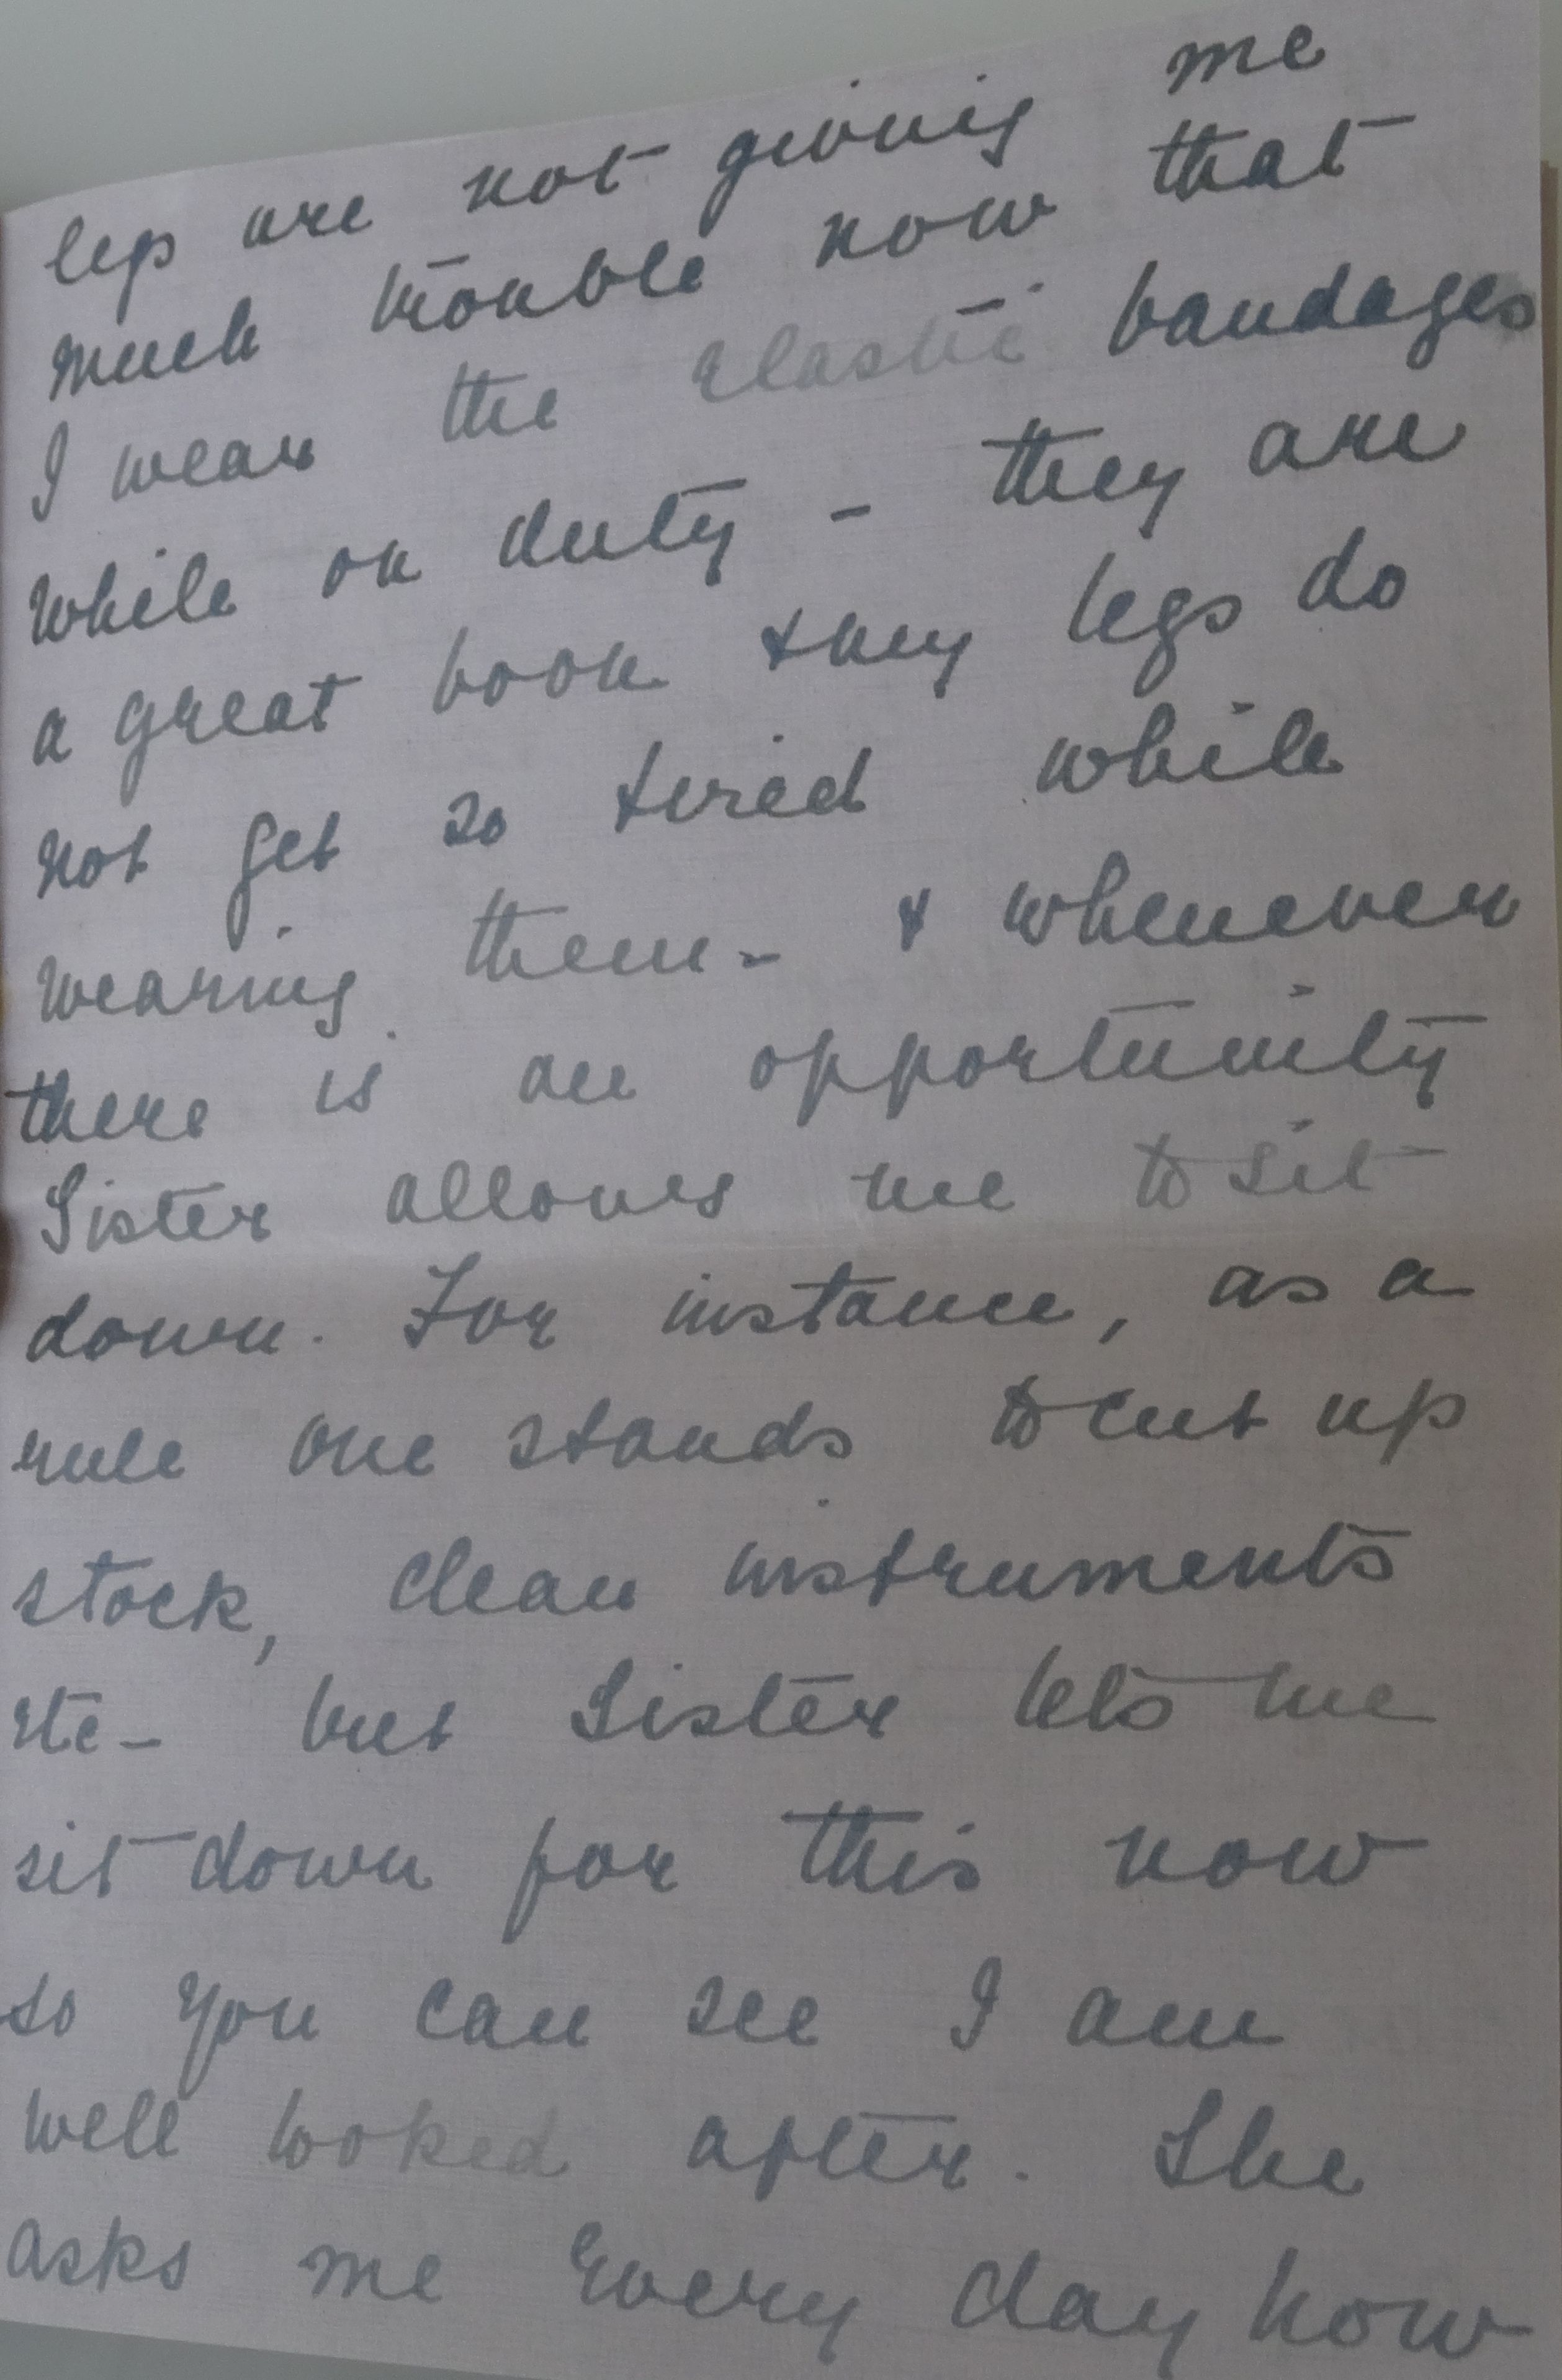 legs are not giving me
much trouble now that
I wear the elastic bandages
while on duty - they are
a great boon & my legs do
not get so tired while
wearing them - & whenever
there is an opportunity
Sister allows me to sit
down. For instance, as a
rule one stands to cut up
stock, clean instruments
etc - but Sister lets me
sit down for this now
so you can see I am
well looked after. She
asks me every day how